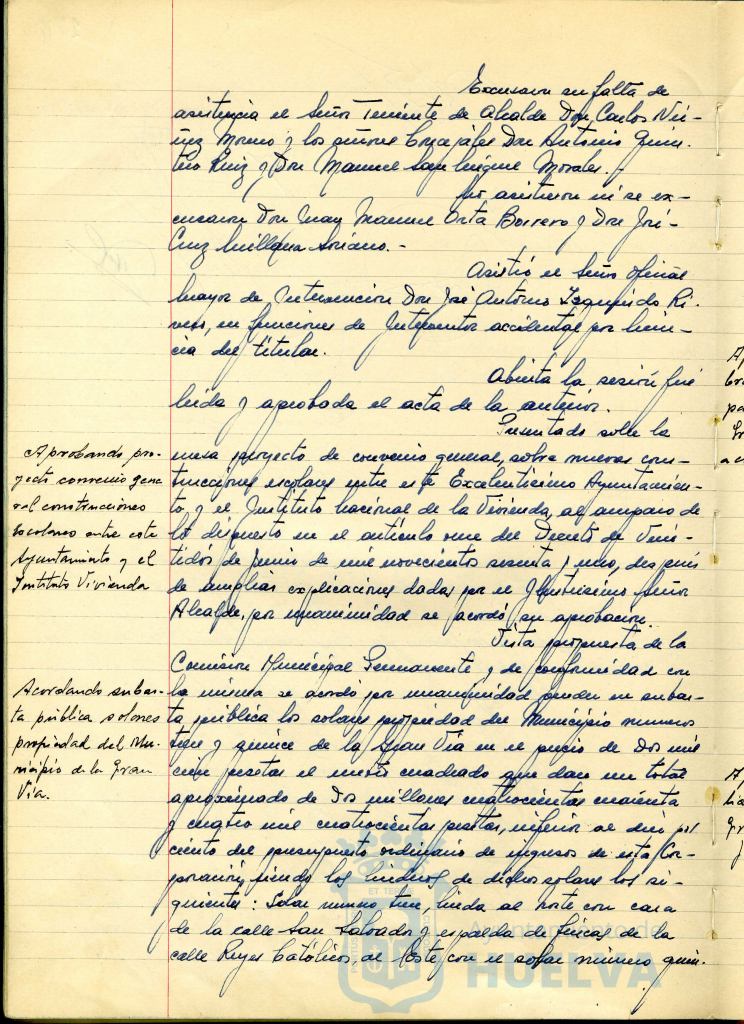 Excusaron su falta de
asistencia el Señor Teniente de Alcalde Don Carlos Nú-
ñez Moreno y los señores Concejales Don Antonio Quin-
tero Ruiz y Don Manuel San Miguel Morales.
No asistieron ni se ex-
cusaron Don Juan Manuel Orta Borrero y Don José
Cruz Soriano.-
Asistió el Señor Oficial
Mayor de Intervención Don José Antonio Izquierdo Ri-
vero, en funciones de Interventor accidental por licen-
cia del titular.
Abierta la sesión fué
leida y aprobada el acta de la anterior.
Presentado sobre la
mesa proyecto de convenio general, sobre nuevas cons-
trucciones escolares entre este Excelentísimo Ayuntamien-
to, y el Instituto Nacional de la Vivienda, al amparo de
lo dispuesto en el artículo once del Decreto de Vein-
tidós de Junio de mil novecientos sesenta y uno, después
de amplias explicaciones dadas por el Ilustrísimo Señor
Alcalde, por unanimidad se acordó su aprobación.
Aprobando pro-
yecto convenio gene-
ral construcciones
escolares entre este
Ayuntamiento y el
Instituto Vivienda
Vista propuesta de la
Comisión Municipal Permanente y de conformidad con
la misma se acordó por unanimidad queden en subas-
ta pública los solares propiedad del Municipio números
trece y quince de la Gran Vía en el precio de Dos mil
cien pesetas el metro cuadrado que dan un total
aproximado de Dos millones cuatrocientas cuarenta
y cuatro mil cuatrocientas pesetas, inferior al diez por
ciento del presupuesto ordinario de ingresos de esta Cor-
poración, siendo los linderos de dichos solares los si-
guientes: Solar número trece, linda al norte con casa
de la calle San Salvador y espalda de fincas de la
calle Reyes Católicos, al Este, con el solar número quin-
Acordando subas-
ta pública solares
propiedad del Mu-
nicipio de la Gran
Vía.
Ayuntamiento de
HUELVA